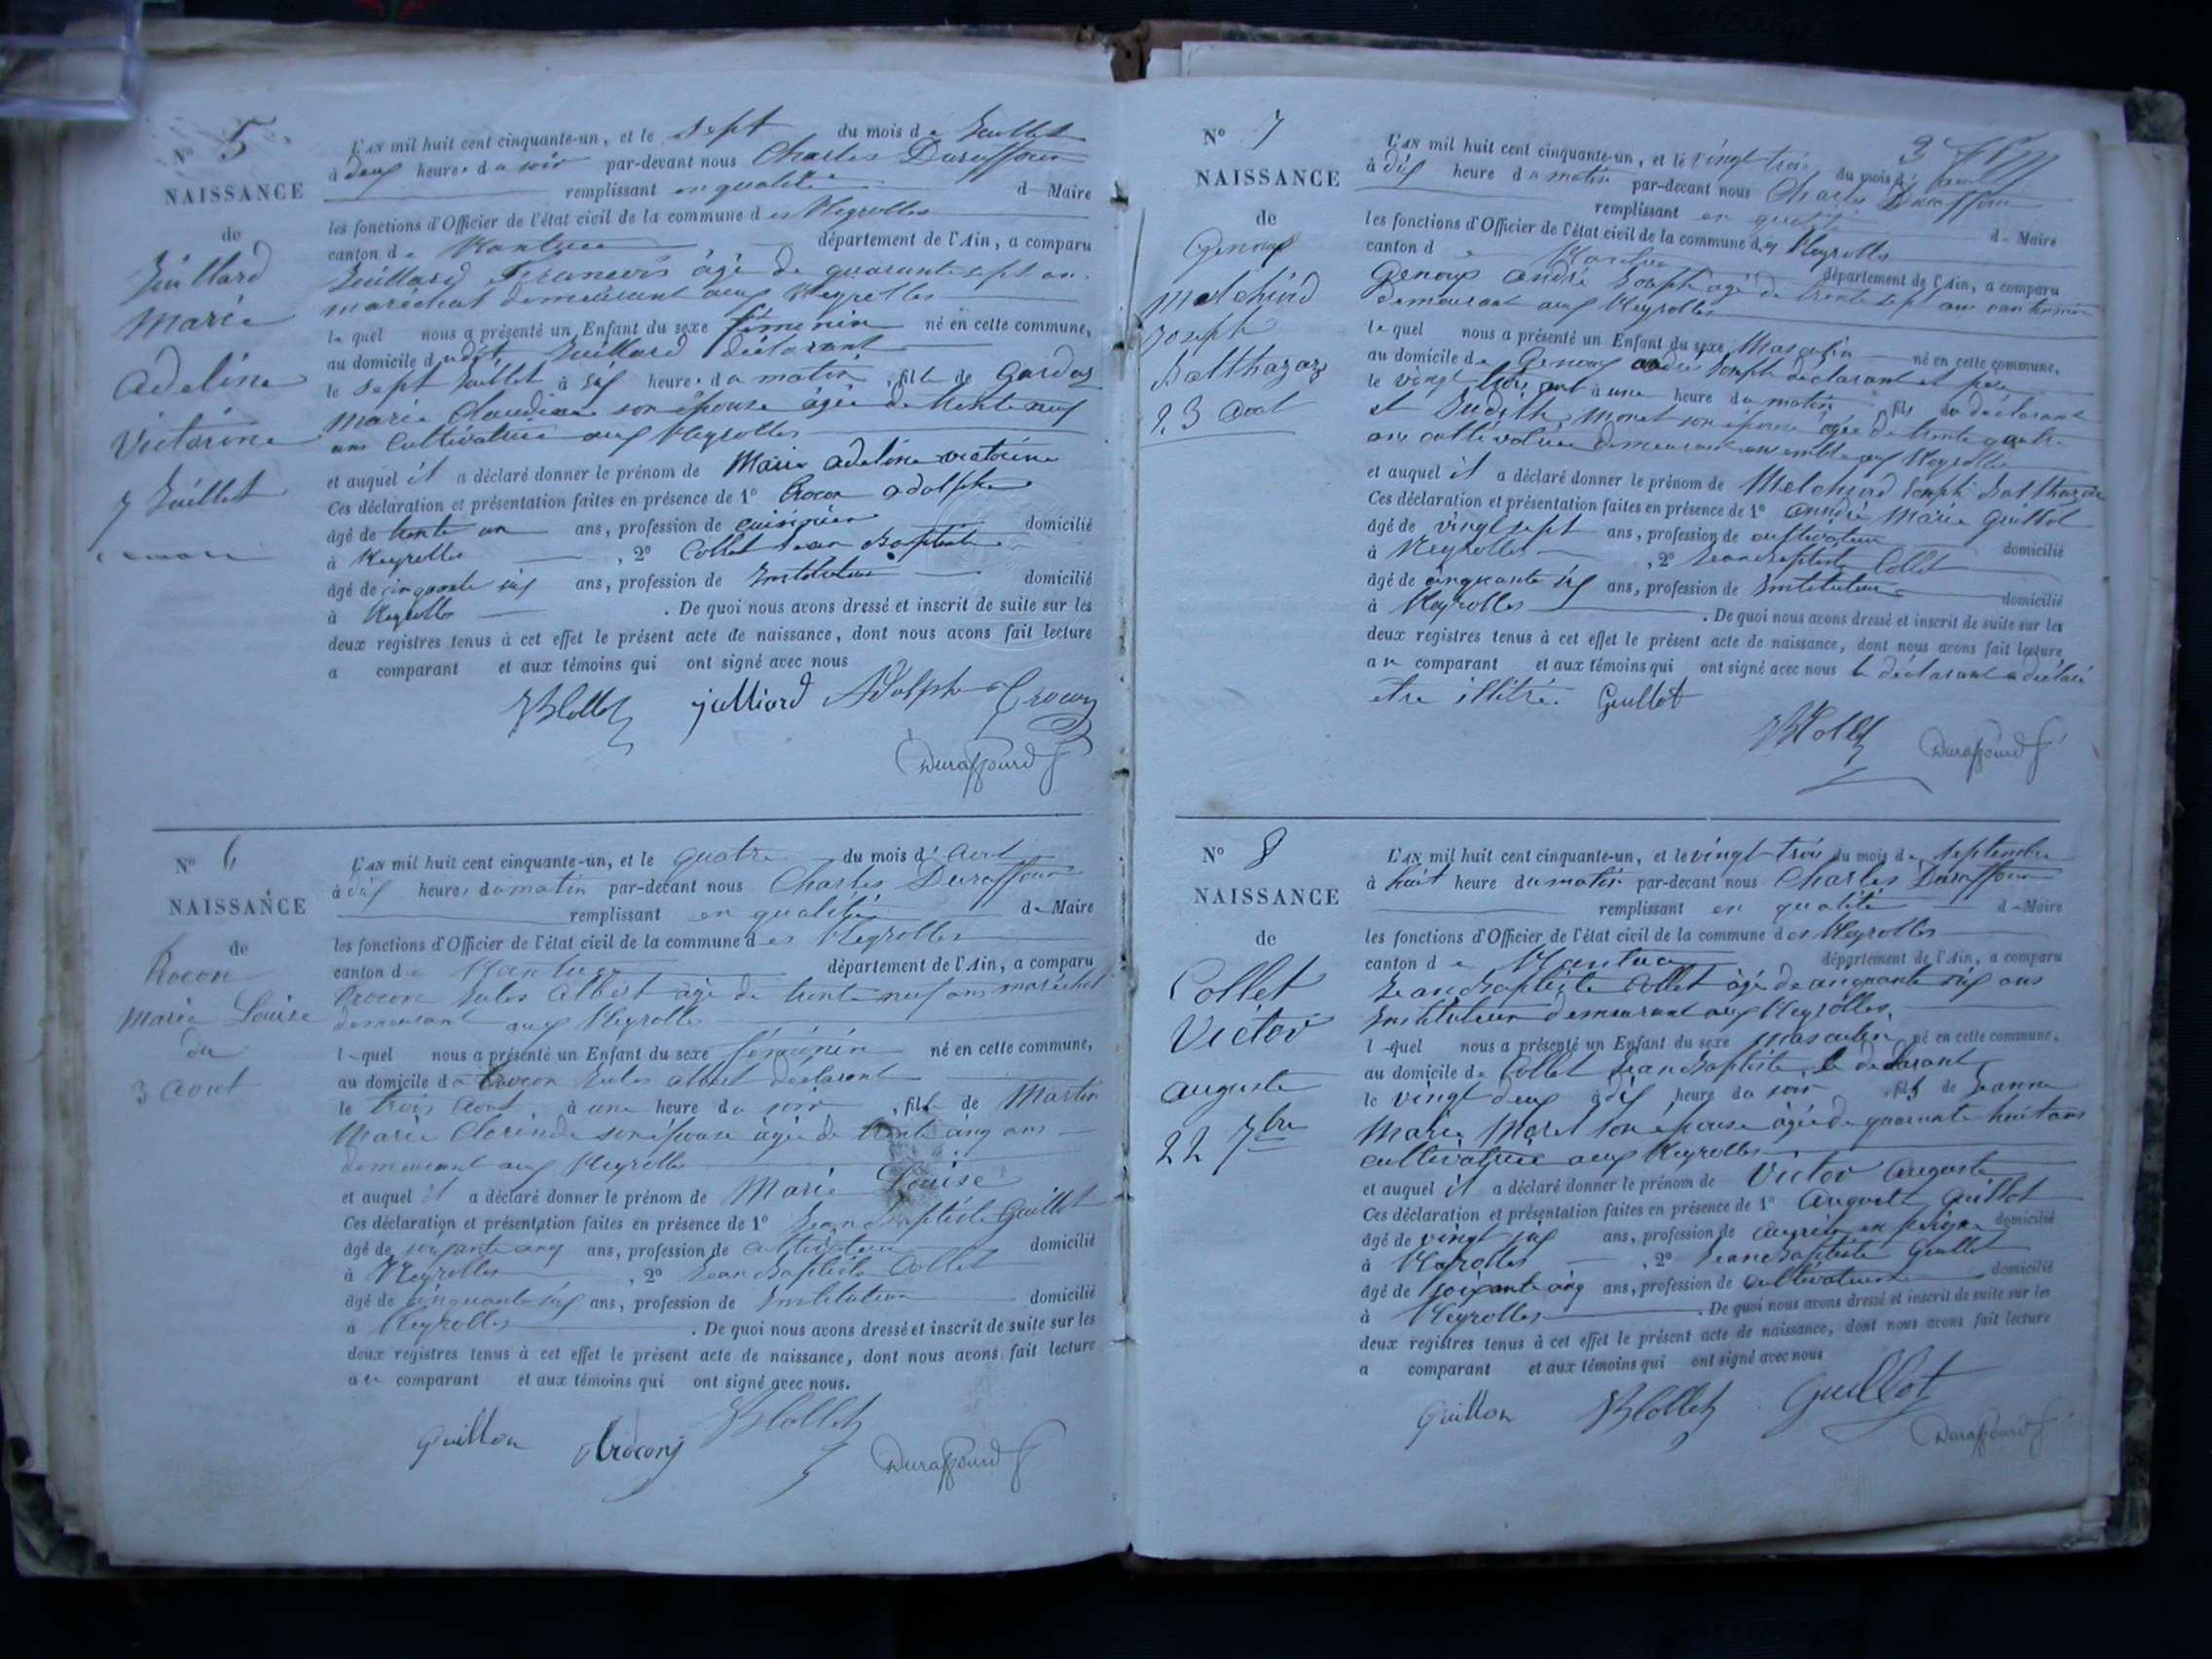 N° 5
NAISSANCE
de
Juillard
Marie
Adeline
Victorine
7 Juillet
L'AN mil huit cent cinquante-un, et le sept du mois de Juillet
à deux heures du soir par-devant nous Charles Duraffour
remplissant en qualité d Maire
les fonctions d'Officier de l'état civil de la commune des Neyrolles
canton de Nantua, département de l'Ain, a comparu
Juillard François âgé de quarante sept ans
maréchal demeurant aux Neyrolles
le quel nous a présenté un Enfant du sexe féminin né en cette commune,
au domicile dudit Juillard déclarant
le sept Juillet à six heures du matin, fille de Gardaz
Marie Claudine son épouse âgée de trente neuf
ans cultivatrice aux Neyrolles
et auquel il a déclaré donner le prénom de Marie adeline victorine
Ces déclaration et présentation faites en présence de 1° Crocon adolphe
âgé de trente un ans, profession de cuisinier domicilié
à Neyrolles, 2° Collet Jean Baptiste
âgé de cinquante six ans, profession de Instituteur domicilié
à Neyrolles. De quoi nous avons dressé et inscrit de suite sur les
deux registres tenus à cet effet le présent acte de naissance, dont nous avons fait lecture
a comparant et aux témoins qui ont signé avec nous
JBCollet julliard Adolphe Crocon
Duraffourd
N° 6
NAISSANCE
de
Crocon
Marie Louise
du
3 aout
L'AN mil huit cent cinquante-un, et le quatre du mois d'Aout
à dix heures du matin par-devant nous Charles Duraffour
remplissant en qualité de Maire
les fonctions d'Officier de l'état civil de la commune des Neyrolles
canton de Nantua département de l'Ain, a comparu
Crocon Jules Albert âgé de trente neuf ans maréchal
demeurant aux Neyrolles
l quel nous a présenté un Enfant du sexe féminin né en cette commune,
au domicile de Crocon Jules albert déclarant
le trois Aout, à une heure du soir, fille de Martin
Marie Clorinde son épouse âgée de trente cinq ans
demeurant aux Neyrolles
et auquel il a déclaré donner le prénom de Marie Louise
Ces déclaration et présentation faites en présence de 1° Jean Baptiste Guillot
âgé de soixante cinq ans, profession de cultivateur domicilié
à Neyrolles, 2° Jean Baptiste Collet
âgé de cinquante six ans, profession de Instituteur domicilié
à Neyrolles. De quoi nous avons dressé et inscrit de suite sur les
deux registres tenus à cet effet le présent acte de naissance, dont nous avons fait lecture
au comparant et aux témoins qui ont signé avec nous.
Guillon Crocon JBCollet
Duraffourd
N° 7
NAISSANCE
de
Genoux
Melchiord
Joseph
Balthazar
23 Aout
L'AN mil huit cent cinquante-un, et le vingt trois du mois d'aout
à dix heure du matin par-devant nous Charles Duraffour
remplissant en qualité d Maire
les fonctions d'Officier de l'état civil de la commune des Neyrolles
canton de Nantua département de l'Ain, a comparu
Genoux André Joseph âgé de trente sept ans cantonnier
demeurant aux Neyrolles
le quel nous a présenté un Enfant du sexe Masculin né en cette commune,
au domicile de Genoux andré Joseph déclarant et père
le vingt trois aout à une heure du matin, fils du déclarant
et Judith Monet son épouse âgée de trente quatre
ans cultivatrice demeurant ensemble aux Neyrolles
et auquel il a déclaré donner le prénom de Melchiord Joseph Balthazar
Ces déclaration et présentation faites en présence de 1° André Marie Guillot
âgé de vingt sept ans, profession de cultivateur domicilié
à Neyrolles, 2° Jean Baptiste Collet
âgé de cinquante six ans, profession de Instituteur domicilié
à Neyrolles. De quoi nous avons dressé et inscrit de suite sur les
deux registres tenus à cet effet le présent acte de naissance, dont nous avons fait lecture
au comparant et aux témoins qui ont signé avec nous le déclarant a déclaré
etre illitré. Guillot
JBCollet Duraffourd
N° 8
NAISSANCE
de
Collet
Victor
auguste
22 7bre
L'AN mil huit cent cinquante-un, et le vingt trois du mois de septembre
à huit heure du matin par-devant nous Charles Duraffour
remplissant en qualité d Maire
les fonctions d'Officier de l'état civil de la commune des Neyrolles
canton de Nantua département de l'Ain, a comparu
Jean Baptiste Collet âgé de cinquante six ans
Instituteur demeurant aux Neyrolles,
l quel nous a présenté un Enfant du sexe masculin né en cette commune,
au domicile de Collet Jean Baptiste le déclarant
le vingt deux à dix heure du soir, fils de Jeanne
Marie Morel son épouse âgée de quarante huit ans
cultivatrice aux Neyrolles
et auquel il a déclaré donner le prénom de Victor Auguste
Ces déclaration et présentation faites en présence de 1° Auguste Guillot
âgé de vingt six ans, profession de domicilié
à Neyrolles, 2° Jean Baptiste Guillot
âgé de soixante cinq ans, profession de Cultivateur domicilié
à Neyrolles. De quoi nous avons dressé et inscrit de suite sur les
deux registres tenus à cet effet le présent acte de naissance, dont nous avons fait lecture
a comparant et aux témoins qui ont signé avec nous
Guillon JBCollet Guillot
Duraffourd